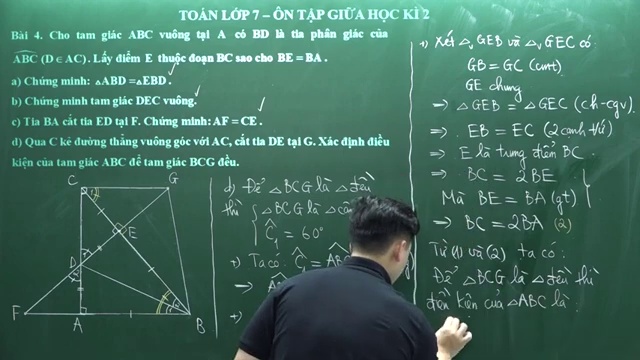 TOÁN LỚP 7 – ÔN TẬP GIỮA HỌC KÌ 2
Bài 4. Cho tam giác ABC vuông tại A có BD là tia phân giác của
ABC (D ∈ AC). Lấy điểm E thuộc đoạn BC sao cho BE = BA .
a) Chứng minh: △ABD = △EBD .
b) Chứng minh tam giác DEC vuông.
c) Tia BA cắt tia ED tại F. Chứng minh: AF = CE .
d) Qua C kẻ đường thẳng vuông góc với AC, cắt tia DE tại G. Xác định điều
kiện của tam giác ABC để tam giác BCG đều.
C
G
E
D
F
A
B
d) Để △BCG là △ đều
thì △BCG là △
C₁ = 60°
+) Ta có: C₁ =
⇒
+)
+) Xét △ᵥ GEB và △ᵥ GEC có
GB = GC (cmt)
GE chung
⇒ △GEB = △GEC (ch-cgv)
⇒ EB = EC (2 cạnh t/ứ)
⇒ E là trung điểm BC
⇒ BC = 2BE
Mà BE = BA (gt)
⇒ BC = 2BA (2)
Từ (1) và (2) ta có:
Để △BCG là △ đều thì
điều kiện của △ABC là :